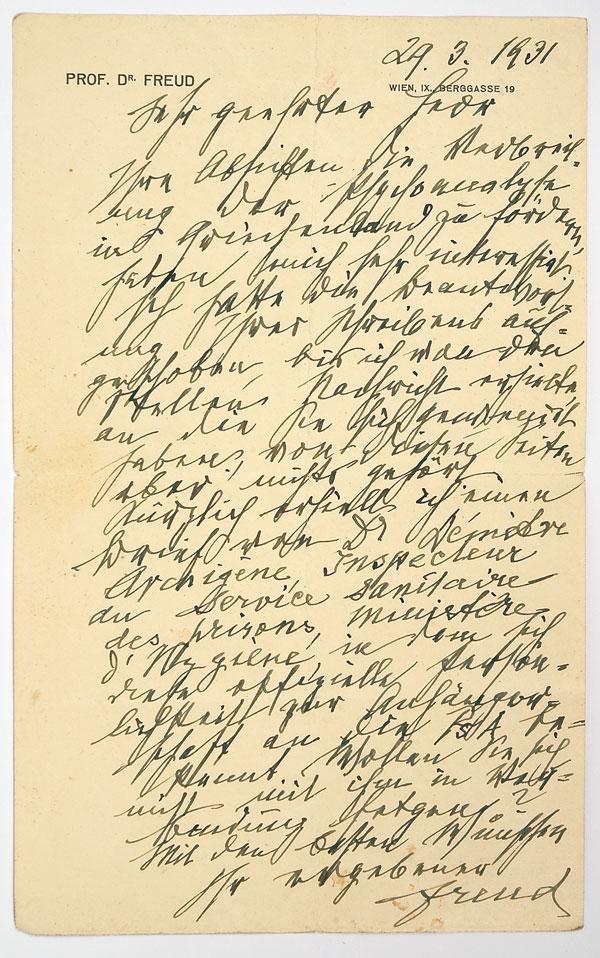 29. 3. 1931
PROF. DR. FREUD
WIEN, IX., BERGGASSE 19
Sehr geehrter Herr
Ihre Absichten die Verbreit-
ung der Psychoanalyse
in Griechenland zu fördern,
haben mich sehr interessiert.
Ich hatte die Beantwort-
ung Ihres Schreibens auf-
geschoben, bis ich von den
Stellen Nachricht erhielte,
an die Sie sich gewendet
haben, von diesen Seiten
aber nichts gehört.
Kürzlich erhielt ich einen
Brief von Dr Démètre
Archigène, Inspecteur
du Service sanitaire
des prisons, ministère
d'Hygiène, in dem sich
diese offizielle Persön-
lichkeit zur Anhänger-
schaft an die PsA be-
kennt. Wollen Sie sich
nicht mit ihm in Ver-
bindung setzen?
Mit den besten Wünschen
Ihr ergebener
Freud